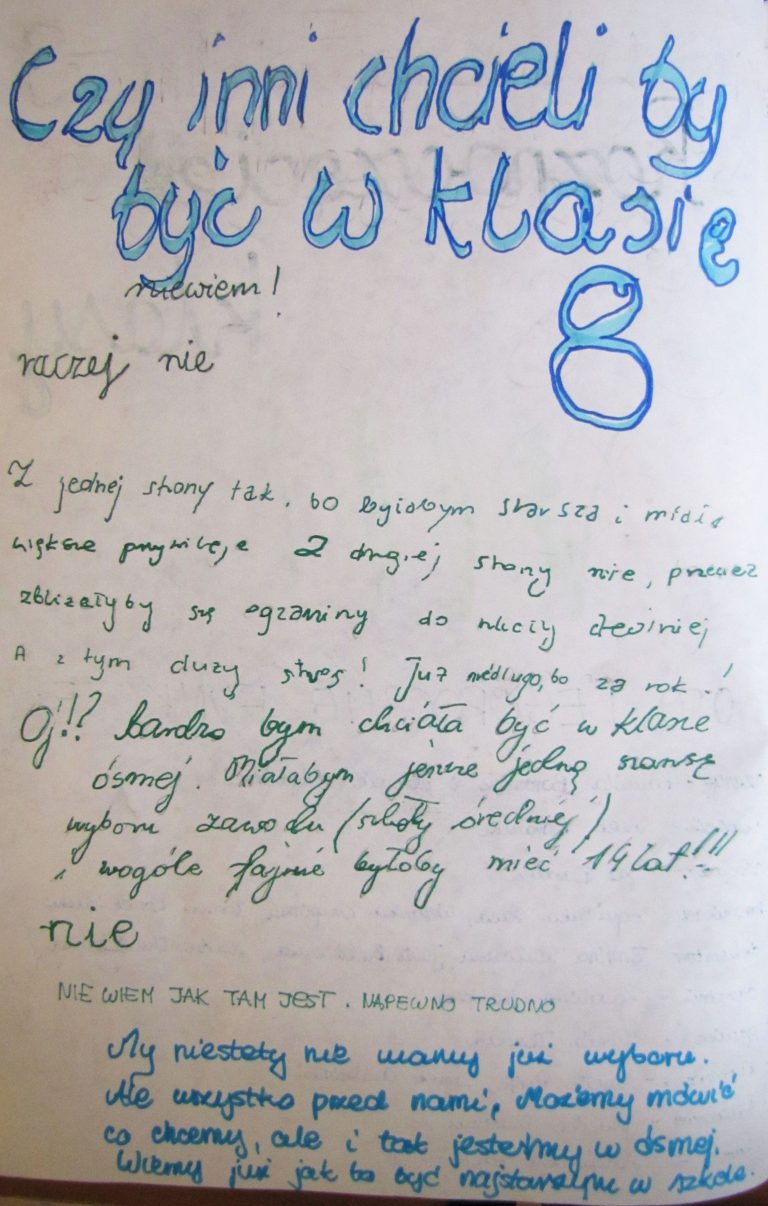 Czy inni chcieli by
być w klasię
8
niewiem!
raczej nie
Z jednej strony tak, bo byłabym starsza i
większe przywileje Z drugiej strony nie, przecież
zbliżałyby się egzaminy do
A z tym duzy stres! Już niedługo, bo za rok!
Oj!!? bardzo bym chciała być w klasie
ósmej. Miałabym jeszcze jedną szansę
wyboru zawodu (szkoły średniej)
i wogóle fajnie byłoby mieć 14 lat!!!
nie
NIE WIEM JAK TAM JEST. NAPEWNO TRUDNO
My niestety nie mamy już wyboru.
Ale wszystko przed nami, Możemy mówić
co chcemy, ale i tak jesteśmy w ósmej.
Wiemy już jak to być najstarszym w szkole.